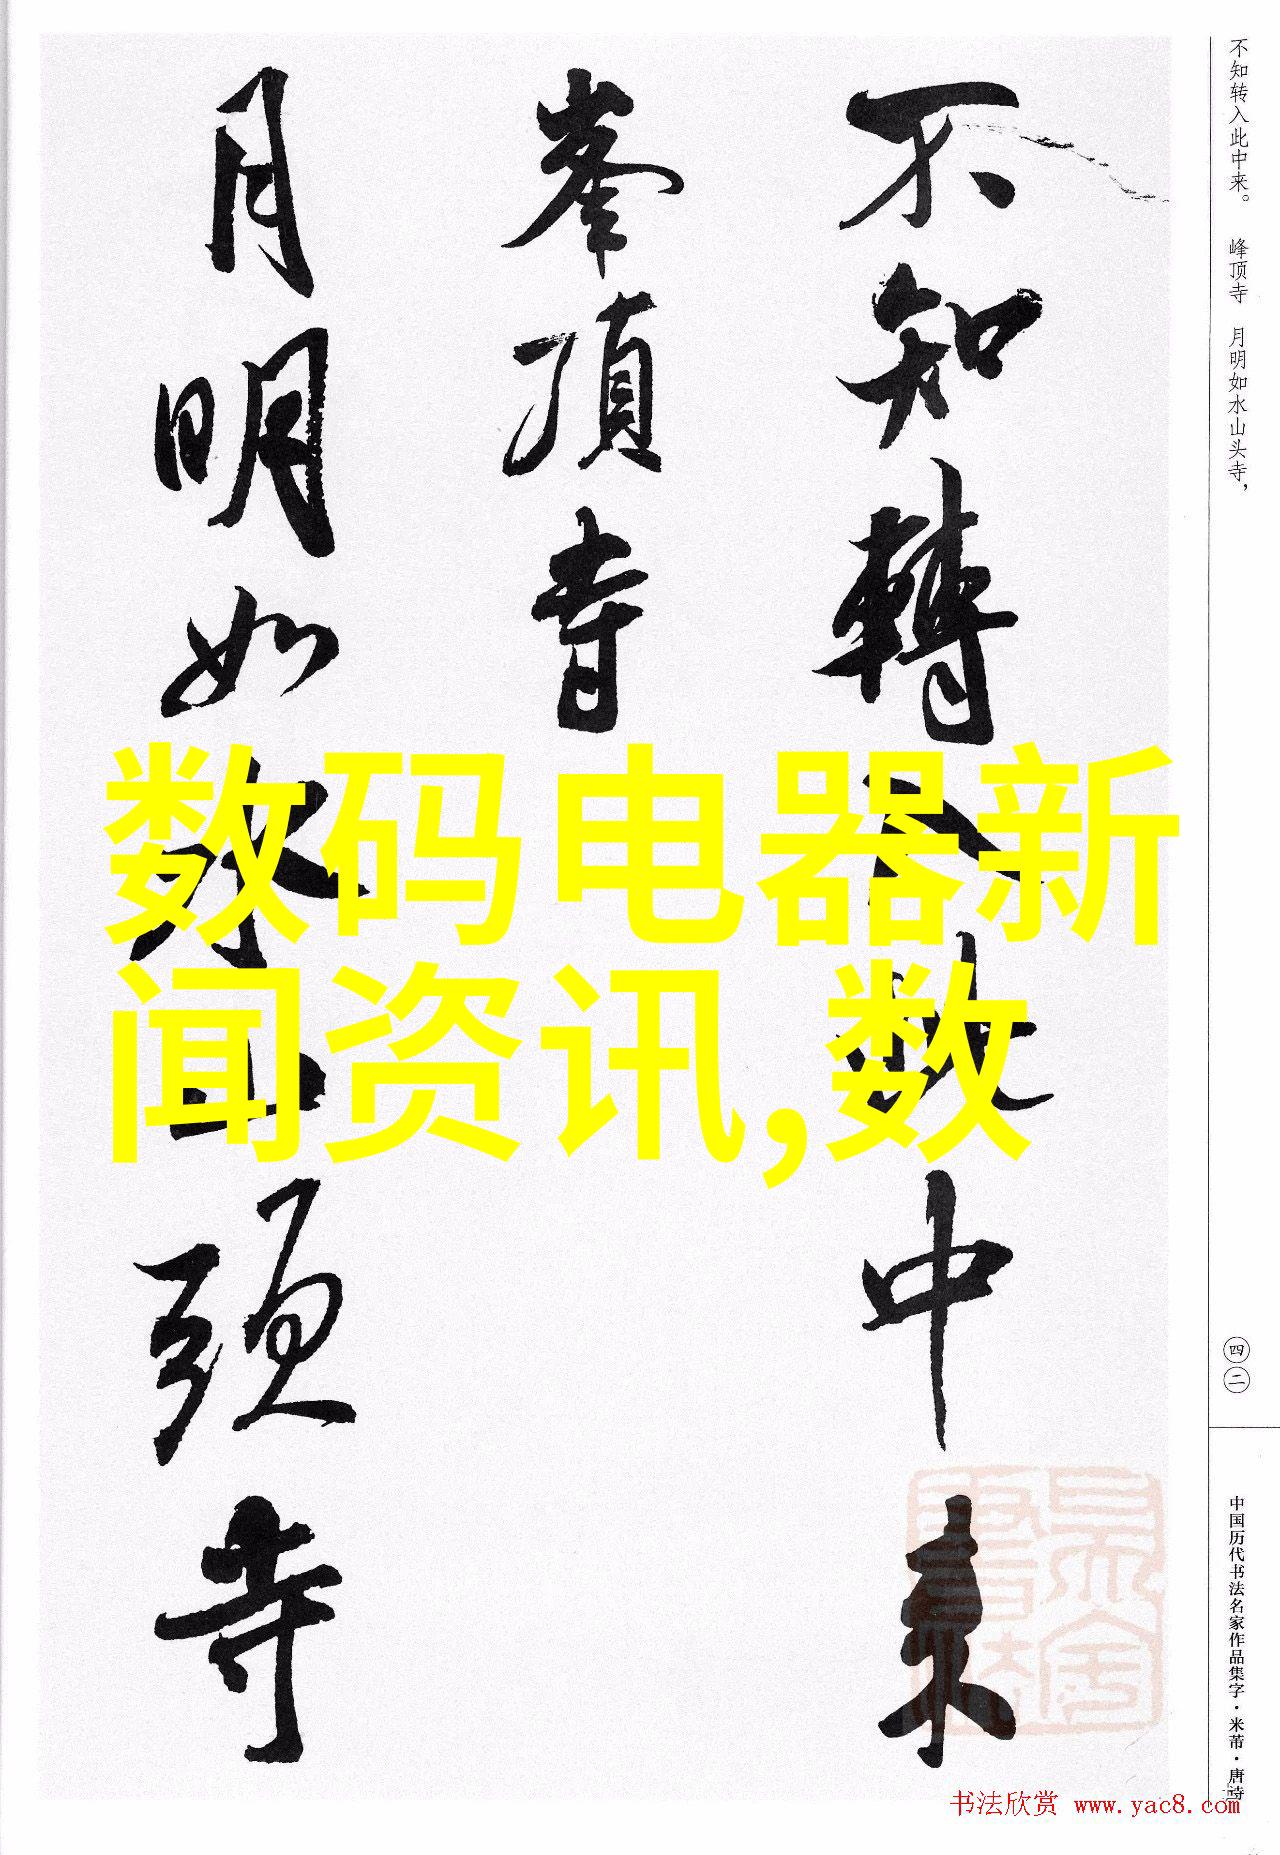 不知轉入此中来
峯頂寺
月明如水山頭寺
数码电器新
闻资讯,数
不知转入此中来。 峰顶寺 月明如水山头寺,
四二
中国历代书法名家作品集字·米芾·唐诗
书法欣赏 www.yac8.com